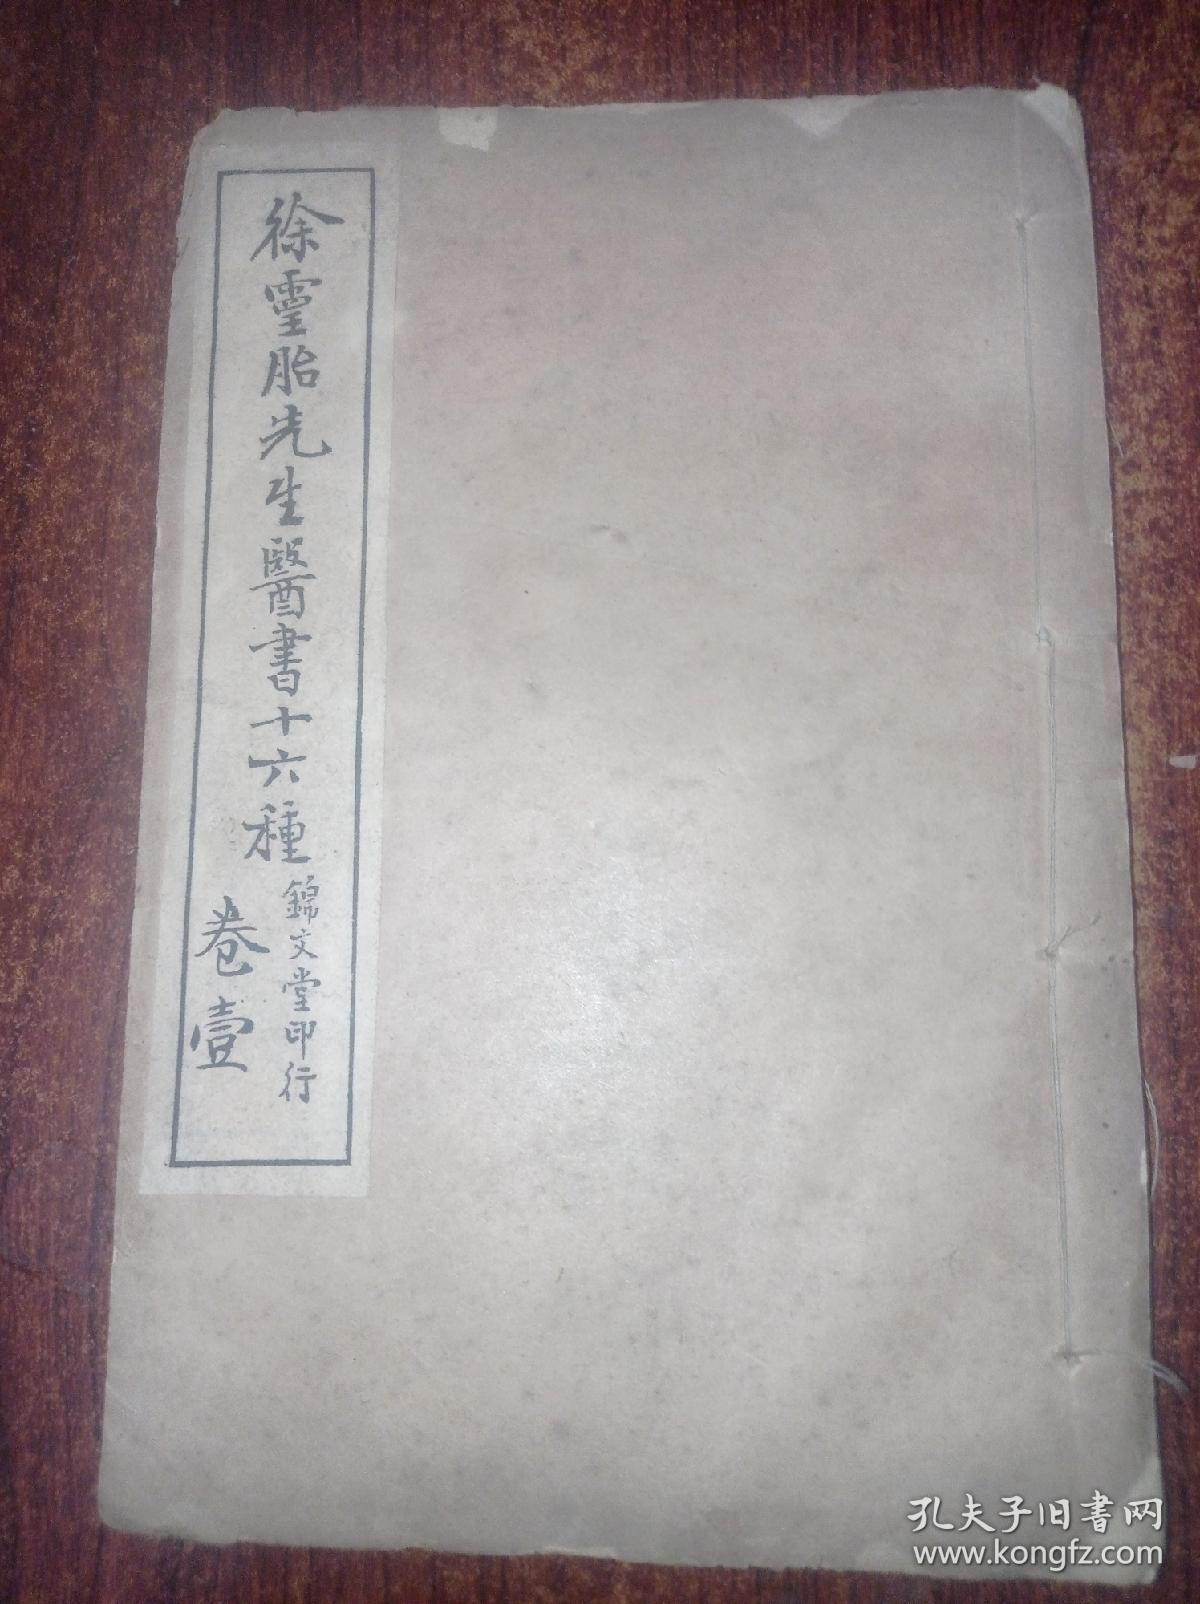 徐靈胎先生醫書十六種
錦文堂印行
卷壹
孔夫子旧书网
www.kongfz.com